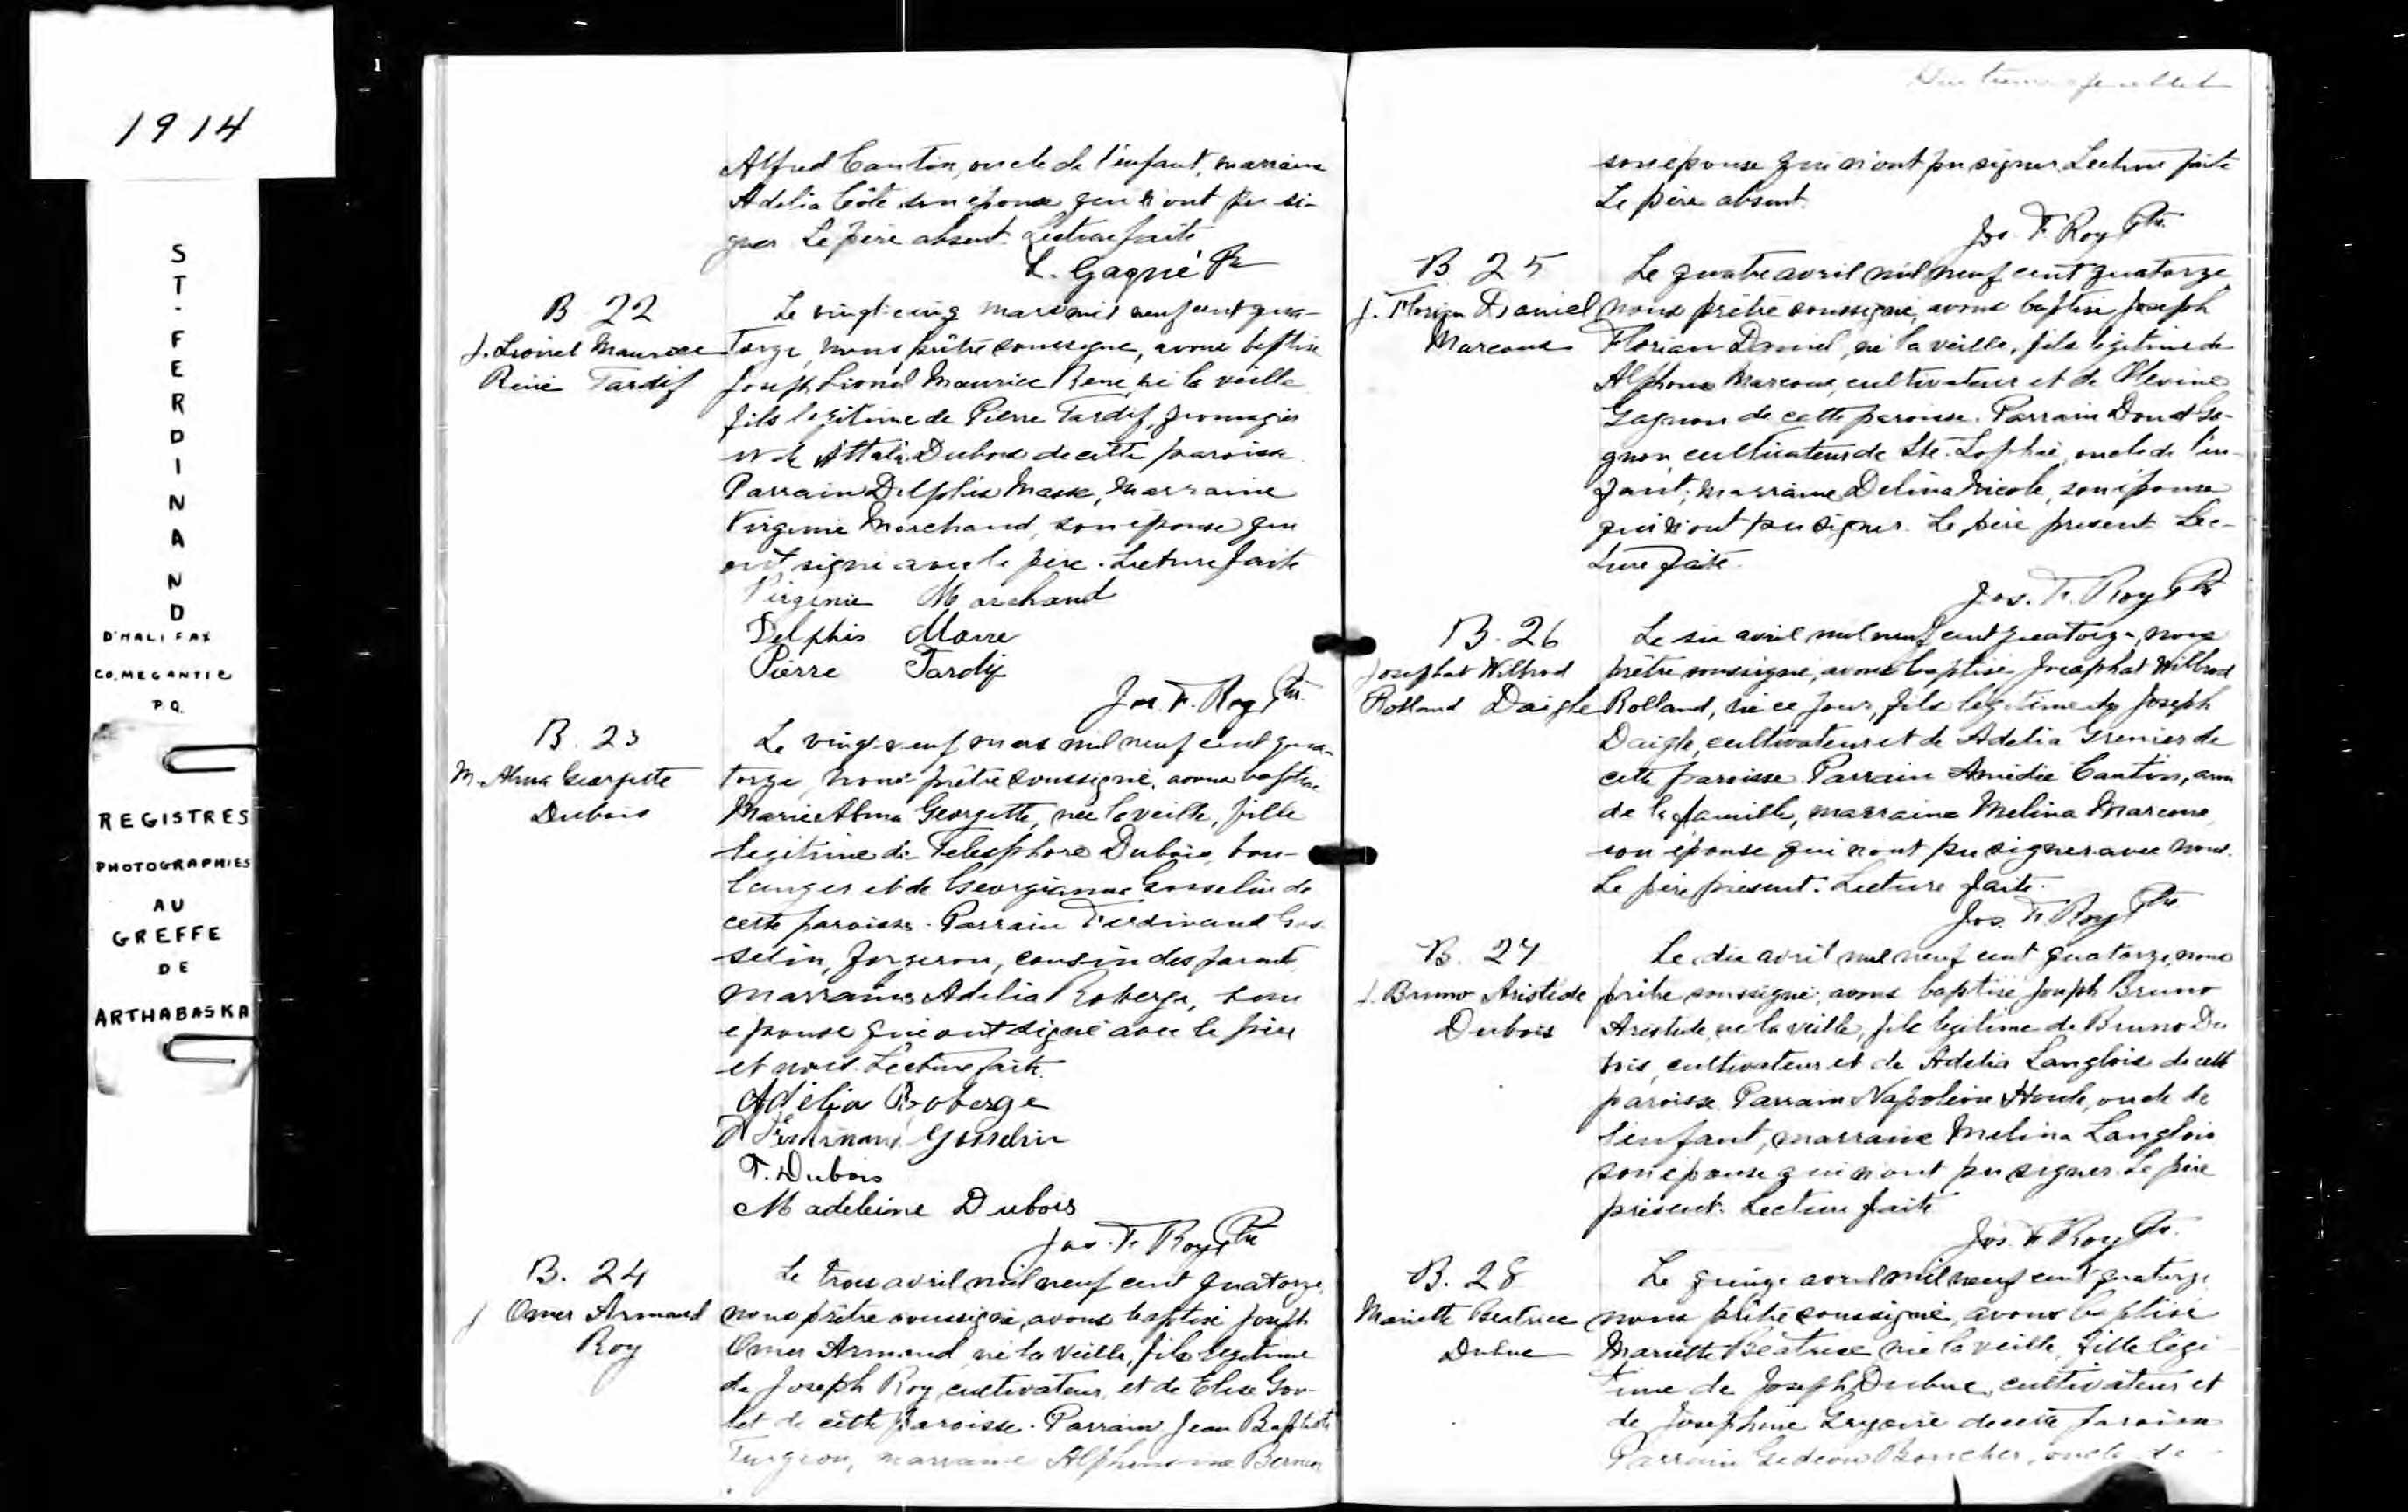 1914
ST-FERDINAND
D'HALIFAX
CO. MEGANTIC
P.Q.
REGISTRES
PHOTOGRAPHIES
AU
GREFFE
DE
ARTHABASKA
Alfred Cantin, oncle de l'enfant, marraine
Adelia Côté son épouse qui n'ont pu si-
gner Le père absent. Lecture faite
L. Gagné Ptr
B 22
J. Lionel Maurice
René Tardif
Le vingt-cinq mars mil neuf cent qua-
torze, nous prêtre soussigné, avons baptisé
Joseph Lionel Maurice René, né la veille
fils legitime de Pierre Tardif, fromager
et de Attala Dubois de cette paroisse
Parrain Delphis Masse, Marraine
Virginie Marchand, son épouse qui
ont signé avec le père. Lecture faite
Virginie Marchand
Delphis Masse
Pierre Tardif
Jos. F. Roy Ptr.
B. 23
M. Alma Georgette
Dubois
Le vingt-neuf mars mil neuf cent qua-
torze, nous prêtre soussigné, avons baptisé
Marie Alma Georgette, née la veille, fille
legitime de Telesphore Dubois, bou-
langer et de Georgianna Gosselin de
cette paroisse. Parrain Ferdinand Gos-
selin, forgeron, cousin des parents
marraine Adelia Roberge, son
epouse qui ont signé avec le père
et nous. Lecture faite.
Adélia Roberge
Ferdinand Gosselin
T. Dubois
Madeleine Dubois
Jos. F. Roy Ptr
B. 24
J Omer Armand
Roy
Le trois avril mil neuf cent quatorze,
nous prêtre soussigné, avons baptisé Joseph
Omer Armand, né la veille, fils legitime
de Joseph Roy, cultivateur, et de Elise Gou-
let de cette paroisse. Parrain Jean Baptiste
Turgeon, marraine Alphonsine Bernier
feuillet
son épouse qui n'ont pu signer. Lecture faite
Le père absent.
Jos. F. Roy Ptr.
B 25
J. Florian Daniel
Marcoux
Le quatre avril mil neuf cent quatorze
nous prêtre soussigné, avons baptisé Joseph
Florian Daniel, né la veille, fils legitime de
Alphonse Marcoux, cultivateur et de Olevine
Gagnon de cette paroisse. Parrain Donat Ga-
gnon, cultivateur de Ste-Sophie, oncle de l'en-
fant; marraine Delina Nicole, son épouse
qui n'ont pu signer. Le père present. Lec-
ture faite.
Jos. F. Roy Ptr
B. 26
Josaphat Wilbrod
Rolland Daigle
Le six avril mil neuf cent quatorze, nous
prêtre soussigné, avons baptisé Josaphat Wilbrod
Rolland, né ce jour, fils legitime de Joseph
Daigle, cultivateur et de Adelia Grenier de
cette paroisse. Parrain Amédée Cantin, ami
de la famille, marraine Melina Marcoux,
son épouse qui n'ont pu signer avec nous.
Le père présent. Lecture faite.
Jos. F. Roy Ptr
B. 27
J. Bruno Aristide
Dubois
Le dix avril mil neuf cent quatorze, nous
prêtre soussigné, avons baptisé Joseph Bruno
Aristide, né la veille, fils legitime de Bruno Du
bois, cultivateur et de Adelia Langlois de cette
paroisse. Parrain Napoléon Houle, oncle de
l'enfant, marraine Melina Langlois
son épouse qui n'ont pu signer. Le père
présent. Lecture faite
Jos. F. Roy Ptr.
B. 28
Mariette Beatrice
Dubuc
Le quinze avril mil neuf cent quatorze
nous prêtre soussigné, avons baptisé
Mariette Béatrice née la veille, fille légi
time de Joseph Dubuc, cultivateur et
de Josephine Gregoire de cette paroisse
Parrain Gedeon Boucher, oncle de